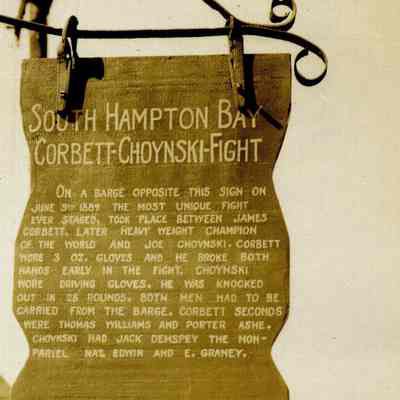 SOUTH HAMPTON BAY
CORBETT-CHOYNSKI-FIGHT
ON A BARGE OPPOSITE THIS SIGN ON
JUNE 5TH 1889 THE MOST UNIQUE FIGHT
EVER STAGED, TOOK PLACE BETWEEN JAMES
CORBETT, LATER HEAVY WEIGHT CHAMPION
OF THE WORLD AND JOE CHOYNSKI. CORBETT
WORE 3 OZ. GLOVES AND HE BROKE BOTH
HANDS EARLY IN THE FIGHT. CHOYNSKI
WORE DRIVING GLOVES. HE WAS KNOCKED
OUT IN 28 ROUNDS. BOTH MEN HAD TO BE
CARRIED FROM THE BARGE. CORBETT SECONDS
WERE THOMAS WILLIAMS AND PORTER ASHE.
CHOYNSKI HAD JACK DEMSPEY THE NON-
PARIEL NAT. EDWIN AND E. GRANEY.